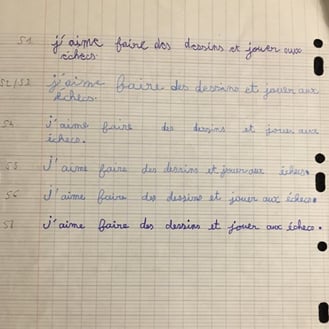 S1 j'aime faire des dessins et jouer aux
échecs.
S2/S3 j'aime faire des dessins et jouer aux
échecs.
S4 j'aime faire des dessins et jouer aux
échecs.
S5 j'aime faire des dessins et jouer aux échecs.
S6 j'aime faire des dessins et jouer aux échecs.
j'aime faire des dessins et jouer aux échecs.